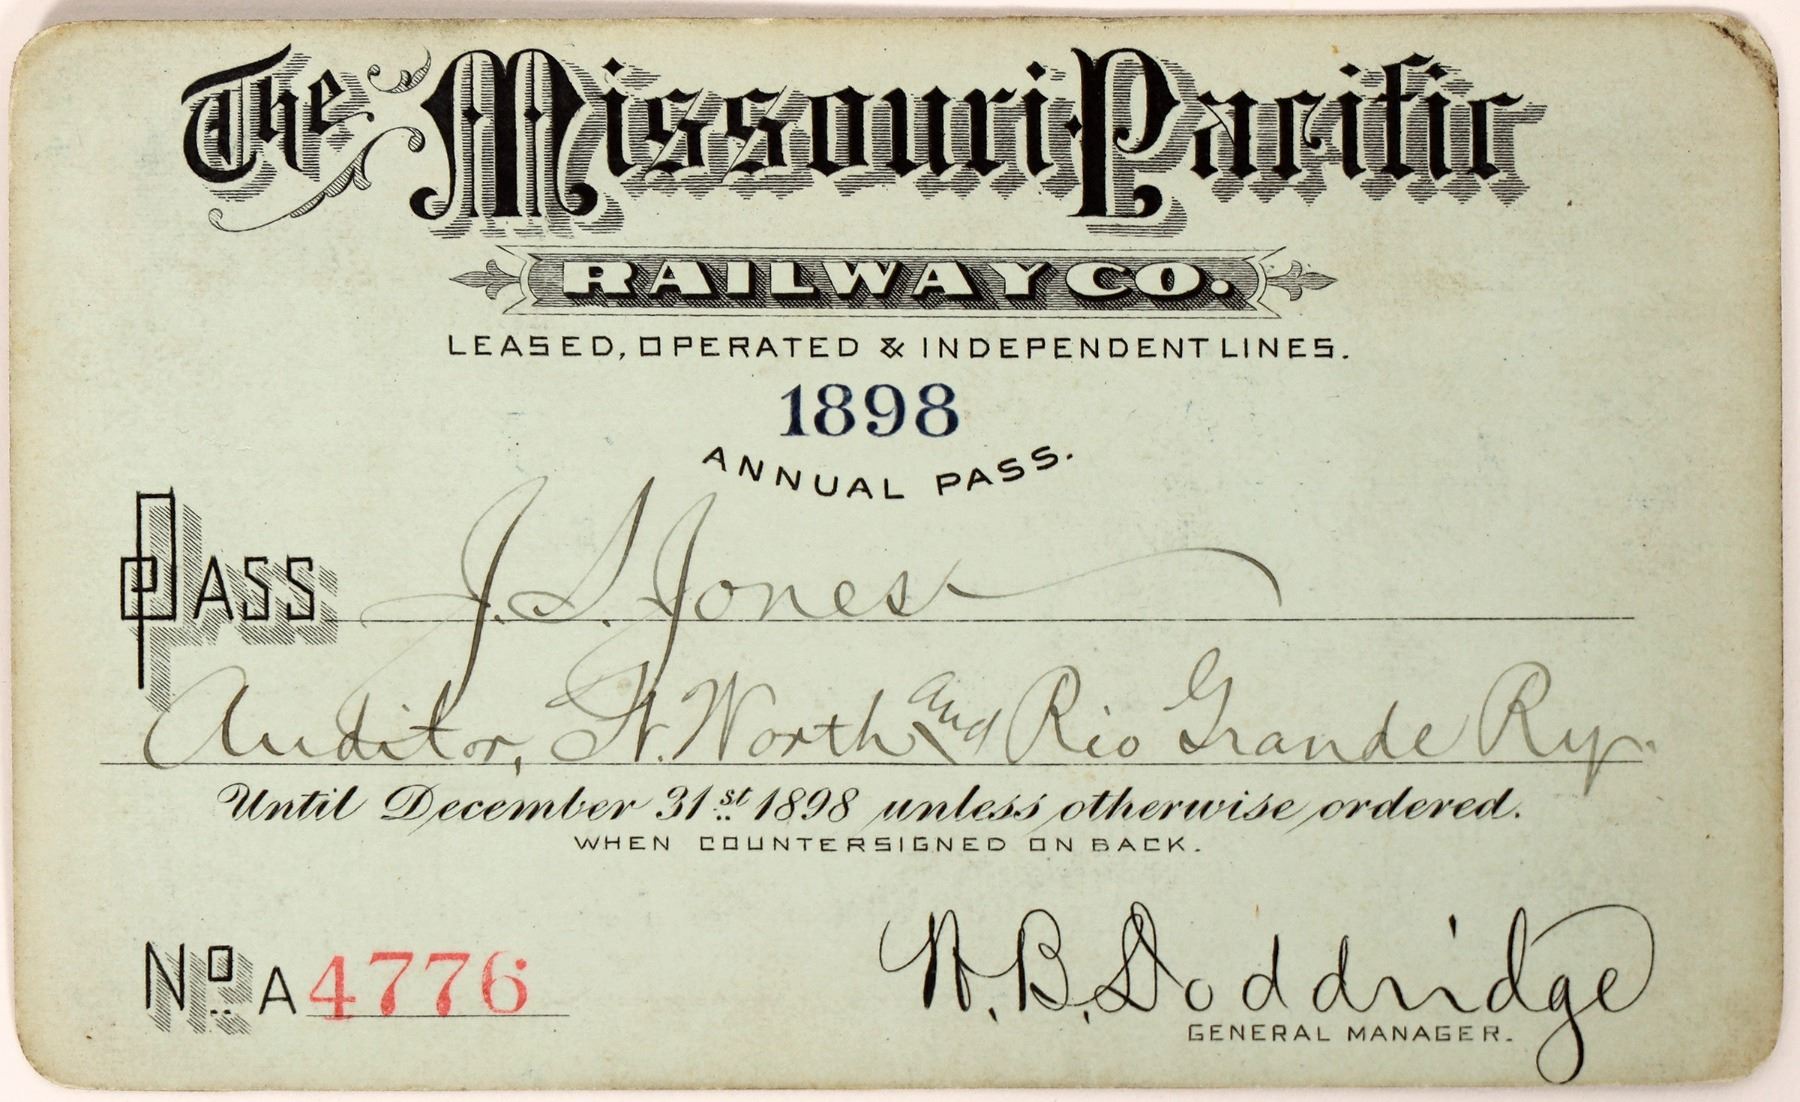 The Missouri Pacific
RAILWAY CO.
LEASED, OPERATED & INDEPENDENT LINES.
1898
ANNUAL PASS.
PASS J. S. Jones
Auditor, Ft. Worth and Rio Grande Ry.
Until December 31st 1898 unless otherwise ordered.
WHEN COUNTERSIGNED ON BACK.
No. A 4776
W. B. Doddridge
GENERAL MANAGER.